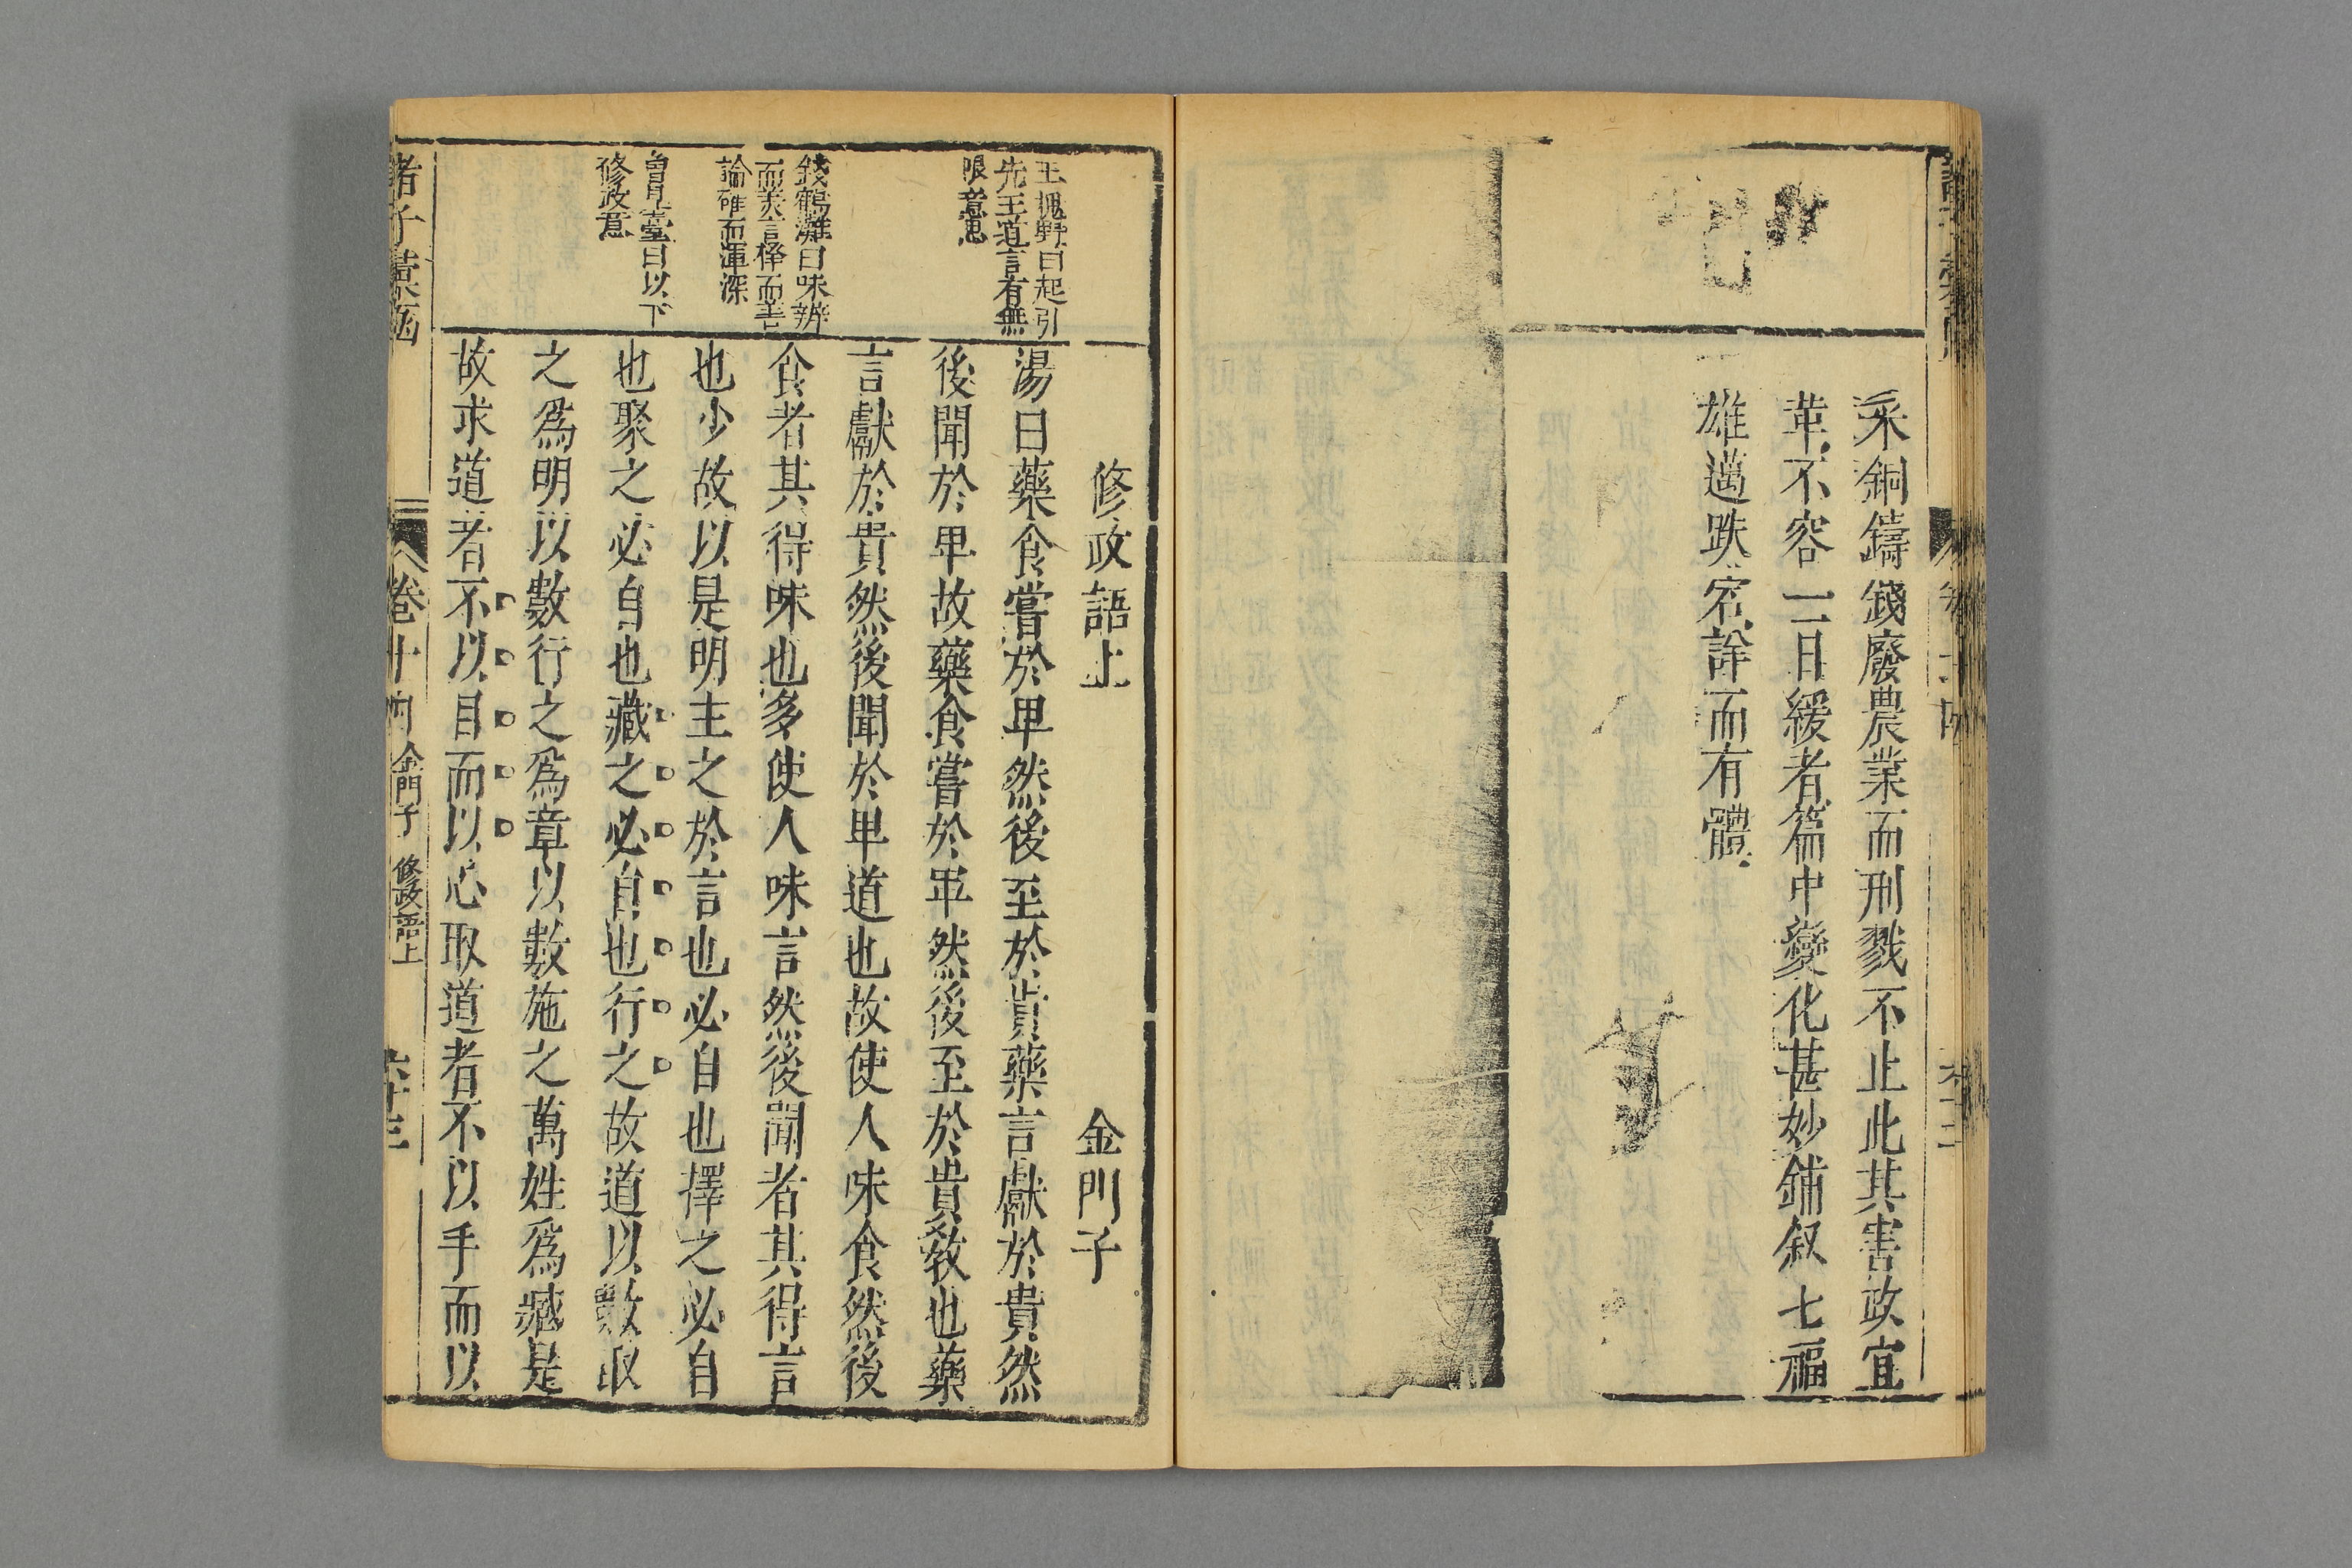 采銅鑄錢廢農業而刑戮不止此其害政宜
革不容一日緩者篇中變化甚妙鋪叙七福
雄邁跌宕詳而有體
修政語上
金門子
王槐野曰起引
先王道言有無
限意思
湯曰藥食嘗於卑然後至於貴藥言獻於貴然
後聞於卑故藥食嘗於卑然後至於貴教也藥
言獻於貴然後聞於卑道也故使人味食然後
錢鶴灘曰味辨
而美言擇而善
論確而渾深
食者其得味也多使人味言然後聞者其得言
也少故以是明主之於言也必自也擇之必自
曾見臺曰以下
修政意
也聚之必自也藏之必自也行之故道以數取
之爲明以數行之爲章以數施之萬姓爲藏是
故求道者不以目而以心取道者不以手而以
諸子彙函
卷十四
金門子
修政語上
六十三